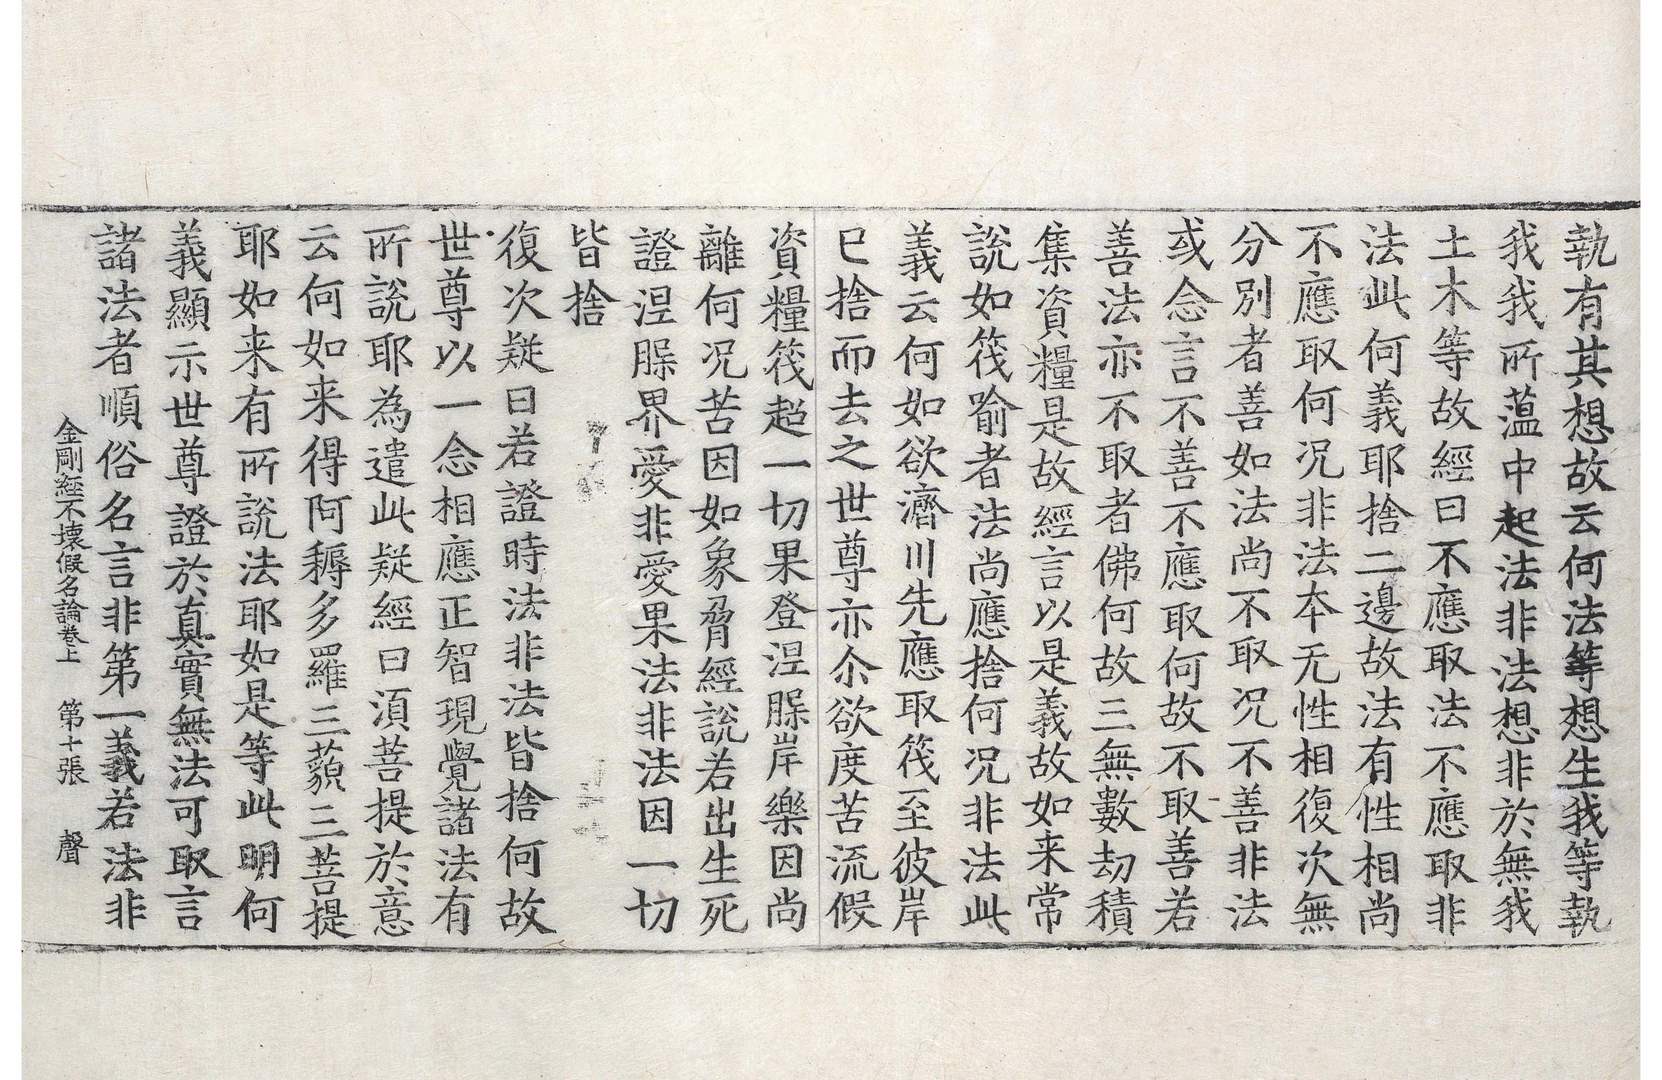 執有其想故云何法等想生我等執
我我所薀中起法非法想非於無我
土木等故經曰不應取法不應取非
法此何義耶捨二邊故法有性相尚
不應取何况非法本无性相復次無
分別者善如法尚不取况不善非法
或念言不善不應取何故不取善若
善法亦不取者佛何故三無數劫積
集資糧是故經言以是義故如来常
說如筏喻者法尚應捨何况非法此
義云何如欲濟川先應取筏至彼岸
已捨而去之世尊亦尒欲度苦流假
資糧筏超一切果登涅槃岸樂因尚
離何况苦因如象脅經說若出生死
證涅槃界愛非愛果法非法因一切
皆捨
復次疑曰若證時法非法皆捨何故
世尊以一念相應正智現覺諸法有
所說耶為遣此疑經曰須菩提於意
云何如来得阿耨多羅三藐三菩提
耶如来有所說法耶如是等此明何
義顯示世尊證於真實無法可取言
諸法者順俗名言非第一義若法非
金剛經不壞假名論卷上 第十張 聲